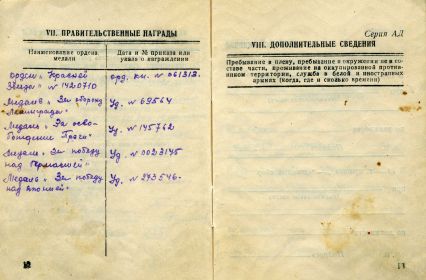 VII. ПРАВИТЕЛЬСТВЕННЫЕ НАГРАДЫ
Наименование ордена
медали
Дата и № приказа или
указа о награждении
Орден „Красной
Звезды" № 1420710
орд. кн. № 061313.
Медаль „За оборону
Ленинграда"
Уд. № 69564
Медаль „За осво-
бождение Праги"
Уд. № 145762
Медаль „За победу
над Германией"
Уд. № 0023175
Медаль „За победу
над Японией"
Уд. № 273546.
Серия АД
VIII. ДОПОЛНИТЕЛЬНЫЕ СВЕДЕНИЯ
Пребывание в плену, пребывание в окружении не в со-
ставе части, проживание на оккупированной против-
ником территории, служба в белой и иностранных
армиях (Когда, где и сколько времени)